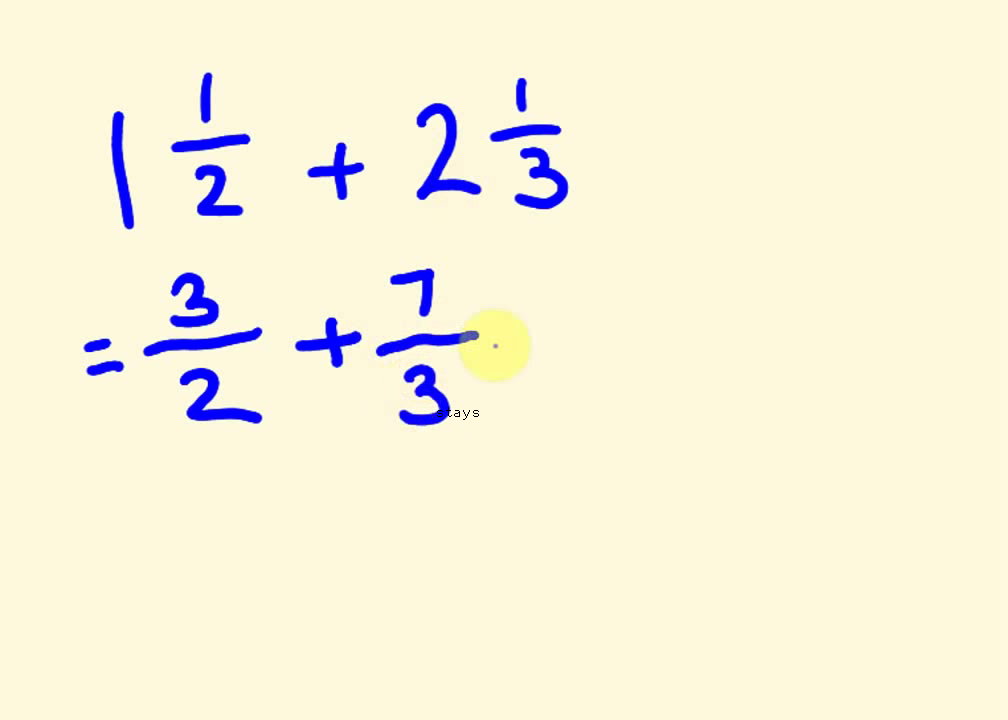 1 1/2 + 2 1/3
= 3/2 + 7/3
stays